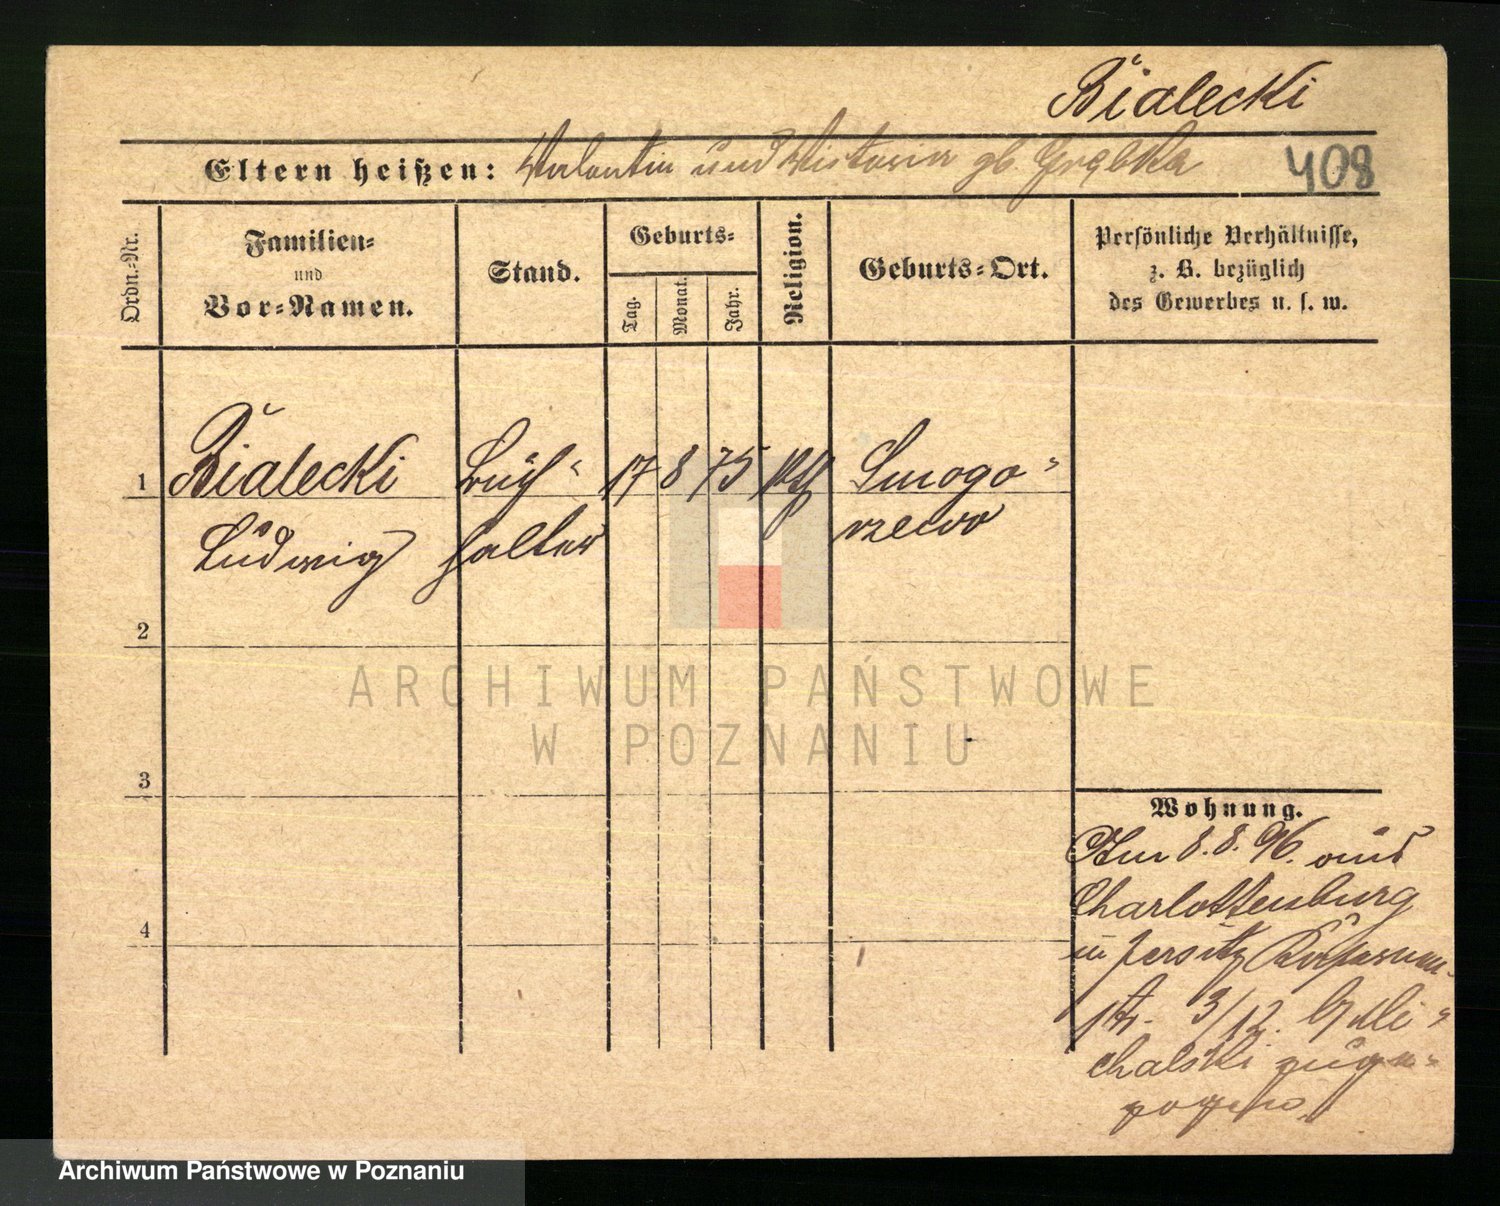 Bialecki
Eltern heißen: Valentin und Wictoria gb. Grębka
408
Ordn.-Nr.
Familien-
und
Vor-Namen.
Stand.
Geburts-
Tag.
Monat.
Jahr.
Religion.
Geburts-Ort.
Persönliche Verhältnisse,
z. B. bezüglich
des Gewerbes u. s. w.
1
Bialecki
Ludwig
Buch-
halter
17
8
75
kth
Smogo-
rzewo
2
3
4
Wohnung.
Am 8.8.96. aus
Charlottenburg
n Jersitz
str. 3/12. b/ Mi-
chalski zuge-
zogen.
ARCHIWUM PAŃSTWOWE
W POZNANIU
Archiwum Państwowe w Poznaniu